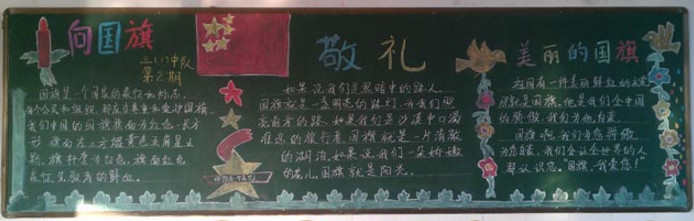 向国旗
敬礼
美丽的国旗
三(1)中队
第2期
国旗是一个国家的象征和标志,
每个公民和组织,都应当尊重和爱护国旗
我们中国的国旗旗面为红色,长方
形,旗面左上方缀黄色五角星五
颗。旗杆套为白色,旗面红色
如果说我们是黑暗中的路人,
国旗就是一盏明亮的路灯,为我们照
亮前方的路,如果我们是沙漠中口渴
难忍的旅行者,国旗就是一片清澈
的湖泊,如果说我们一朵娇嫩
的花儿,国旗就是阳光。
祖国有一件美丽鲜红的
那就是国旗,他是我们全中国
的骄傲,我们为他自豪。
国旗啊,我们为您骄傲,
为您自豪,我们会让全世界的人
都认识您。“国旗,我爱您!”